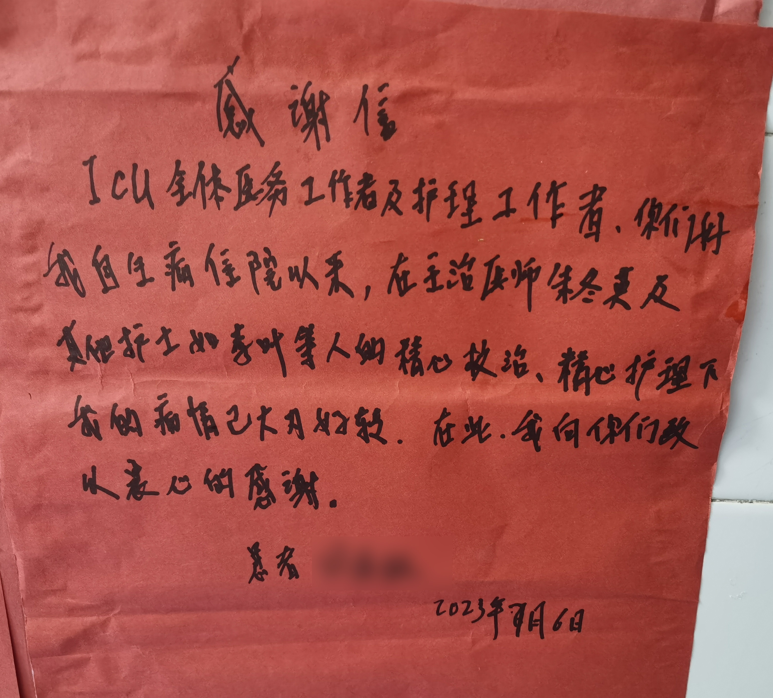 感谢信
ICU全体医务工作者及护理工作者、你们好
我自生病住院以来，在主治医师朱冬英及
其他护士如李叶等人的精心救治、精心护理下
我的病情已大为好转．在此．我向你们致
以衷心的感谢。
患者
2023年月6日